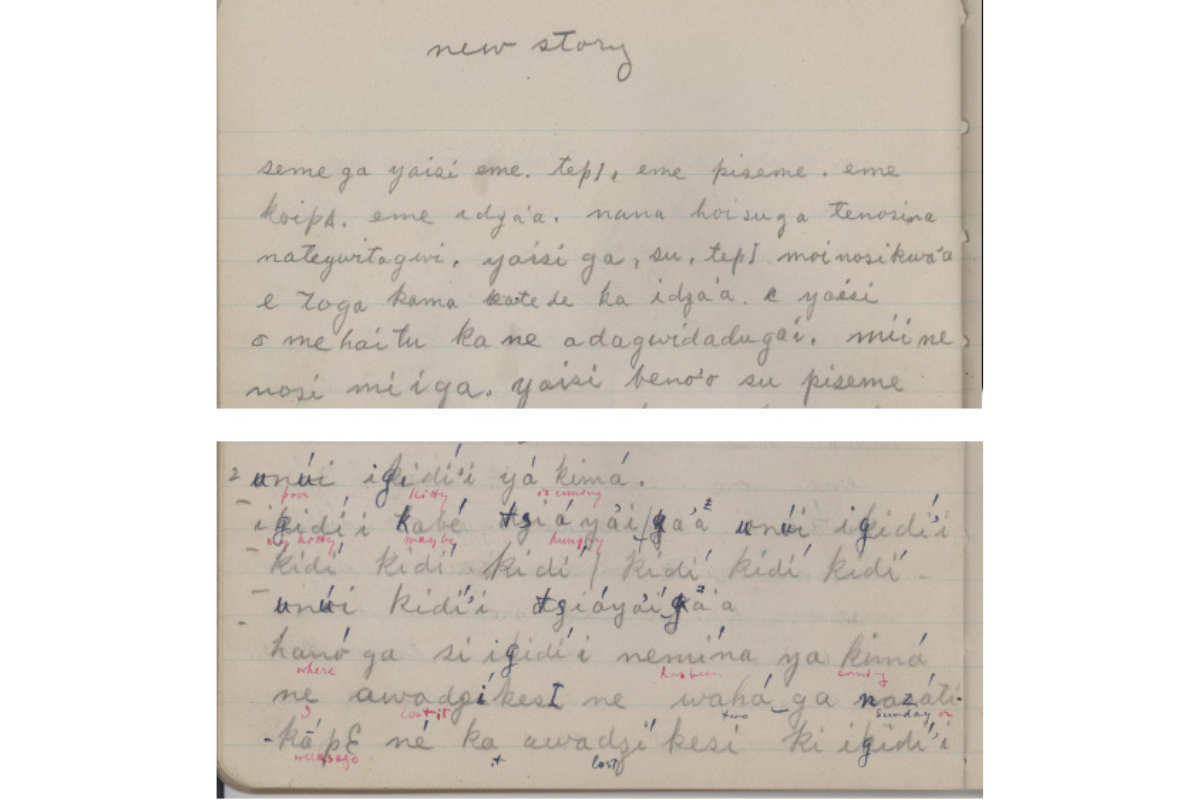 new story
seme ga yaisi eme. tepI, eme piseme. eme
koipA. eme idza'a. nana hoisuga tenosina
nategwitagwi. yaisi ga, su, tepI moinosikwa'a
e toga kama katede ka idza'a. e yaisi
o me haitu ka ne adagwidadugai. mii ne
nosi mi iga. yaisi beno'o su piseme
2 unúi igidí'i yá kimá.
poor kidy is cuming
igidí'i kabé tziáyá'i/gá'a unúi igidí'i
my kidy maybe hungry
kidí kidí kidí / kidí kidí kidí
unúi kidí'i tziáyá'i gá'a
hanó ga si igidí'i nemína ya kimá
where has been coming
ne awadzíkesI ne wahá ga nazáti-
I lost it two sunday or
-kápE né ka awadzí kesi ki igidí'i
week ago it lost